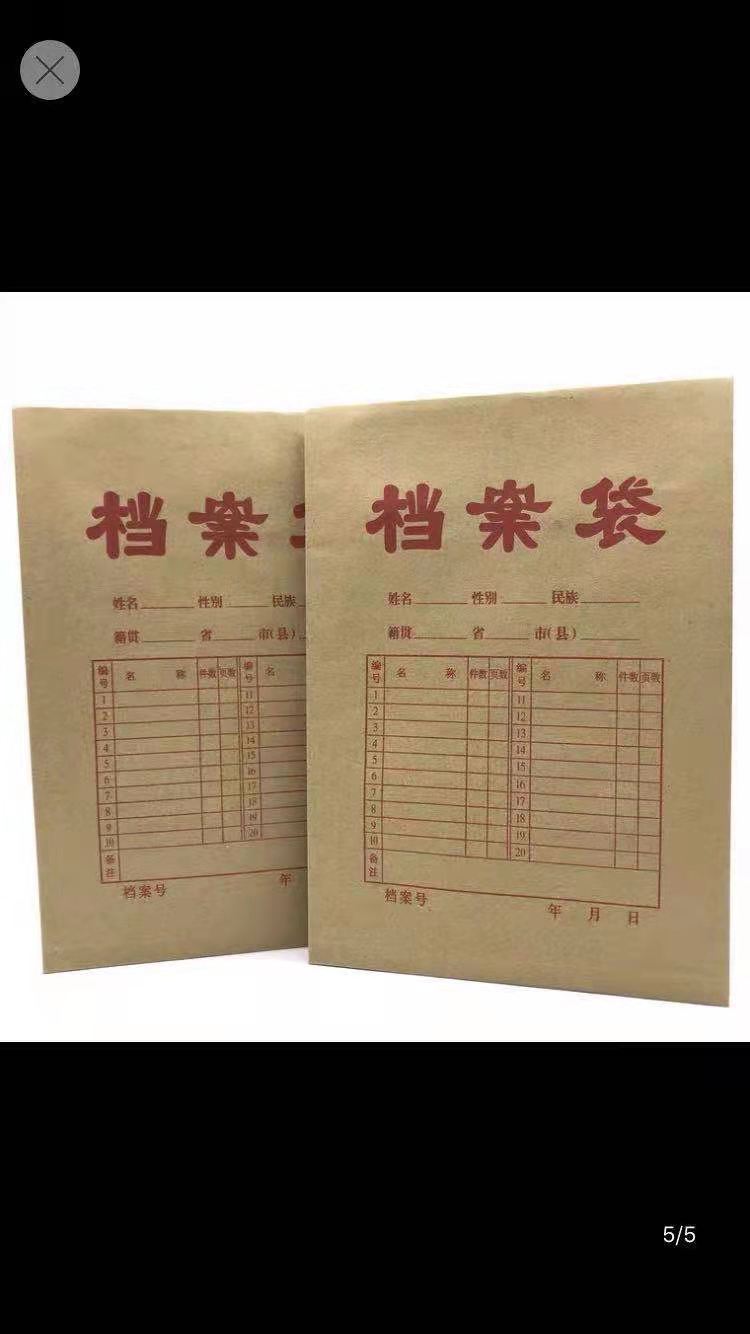 档案
档案袋
姓名 性别 民族
籍贯 省 市(县)
编号 名 称 件数 页数 编号 名
1 11
2 12
3 13
4 14
5 15
6 16
7 17
8 18
9 19
10 20
备注
档案号 年
姓名 性别 民族
籍贯 省 市(县)
编号 名 称 件数 页数 编号 名 称 件数 页数
1 11
2 12
3 13
4 14
5 15
6 16
7 17
8 18
9 19
10 20
备注
档案号 年 月 日
5/5